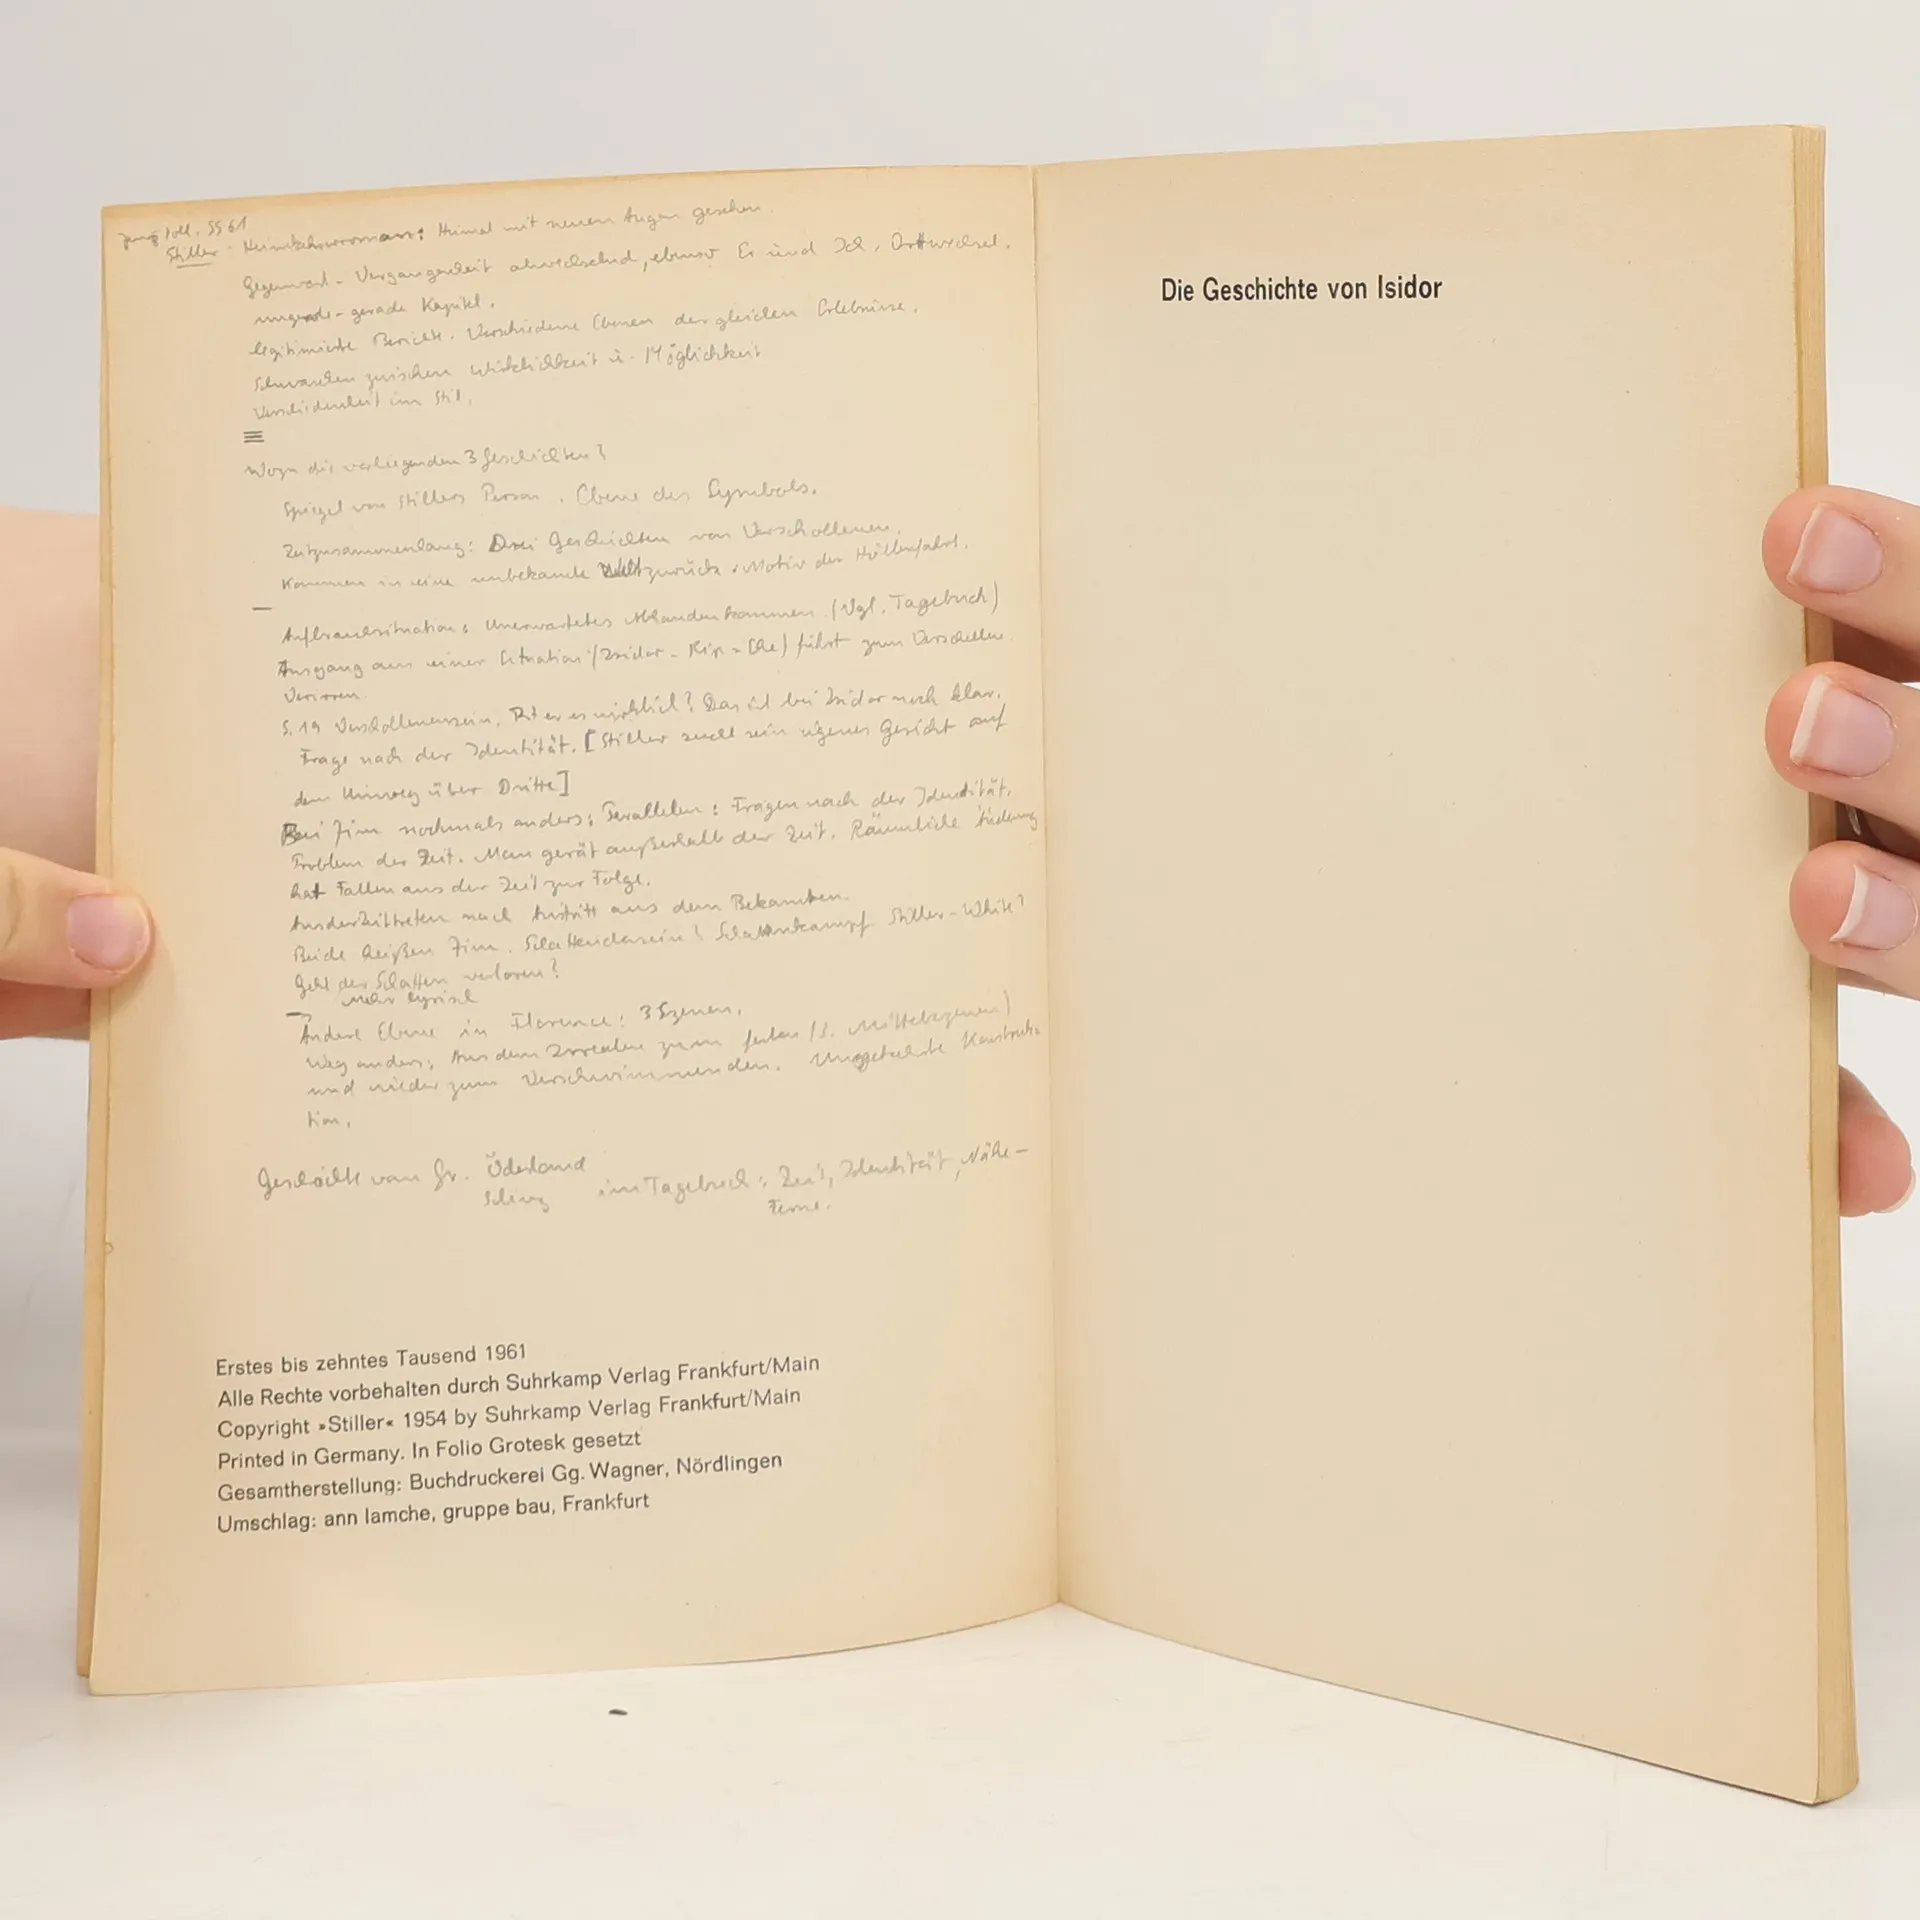 Stiller: Heimkehrerroman: Heimat mit neuen Augen gesehen.
Gegenwart - Vergangenheit abwechselnd, ebenso Er und Ich, Ortwechsel.
ungerade - gerade Kapitel.
legitimierte Berichte. Verschiedene Ebenen der gleichen Erlebnisse.
Schwanken zwischen Wirklichkeit u. Möglichkeit
Verschiedenheit im Stil.
Wozu die vorliegenden 3 Geschichten?
Spiegel von Stillers Person. Ebene des Symbols.
Zeitzusammenhang: Drei Geschichten von Verschollenen.
Kommen in eine unbekannte Welt zurück. Motiv der Höllenfahrt.
Aufbruchsituation: Unerwartetes Abhandenkommen (Vgl. Tagebuch)
Ausgang aus einer Situation (Isidor - Rip = Ehe) führt zum Verschellen
Verirren.
S. 19 Verschollensein. Ist er es wirklich? Das ist bei Isidor noch klar.
Frage nach der Identität. [Stiller sucht sein eigenes Gesicht auf
dem Umweg über Dritte]
Bei Jim nochmals anders: Parallelen: Fragen nach der Identität.
Problem der Zeit. Man gerät außerhalb der Zeit. Räumliche
hat Fallen aus der Zeit zur Folge.
AusderZeittreten nach Austritt aus dem Bekannten.
Beide heißen Jim. Schattendasein? Schattenkampf Stiller - White?
Geht der Schatten verloren?
mehr lyrisch
Andere Ebene in Florence: 3 Szenen.
Weg anders: Aus dem Irrealen zum
und wieder zum Verschwimmenden. Umgekehrte Konstruk-
tion.
Geschichte von Gr. Öderland
Schinz im Tagebuch: Zeit, Identität, Nähe -
Ferne.
Erstes bis zehntes Tausend 1961
Alle Rechte vorbehalten durch Suhrkamp Verlag Frankfurt/Main
Copyright »Stiller« 1954 by Suhrkamp Verlag Frankfurt/Main
Printed in Germany. In Folio Grotesk gesetzt
Gesamtherstellung: Buchdruckerei Gg. Wagner, Nördlingen
Umschlag: ann lamche, gruppe bau, Frankfurt
Die Geschichte von Isidor